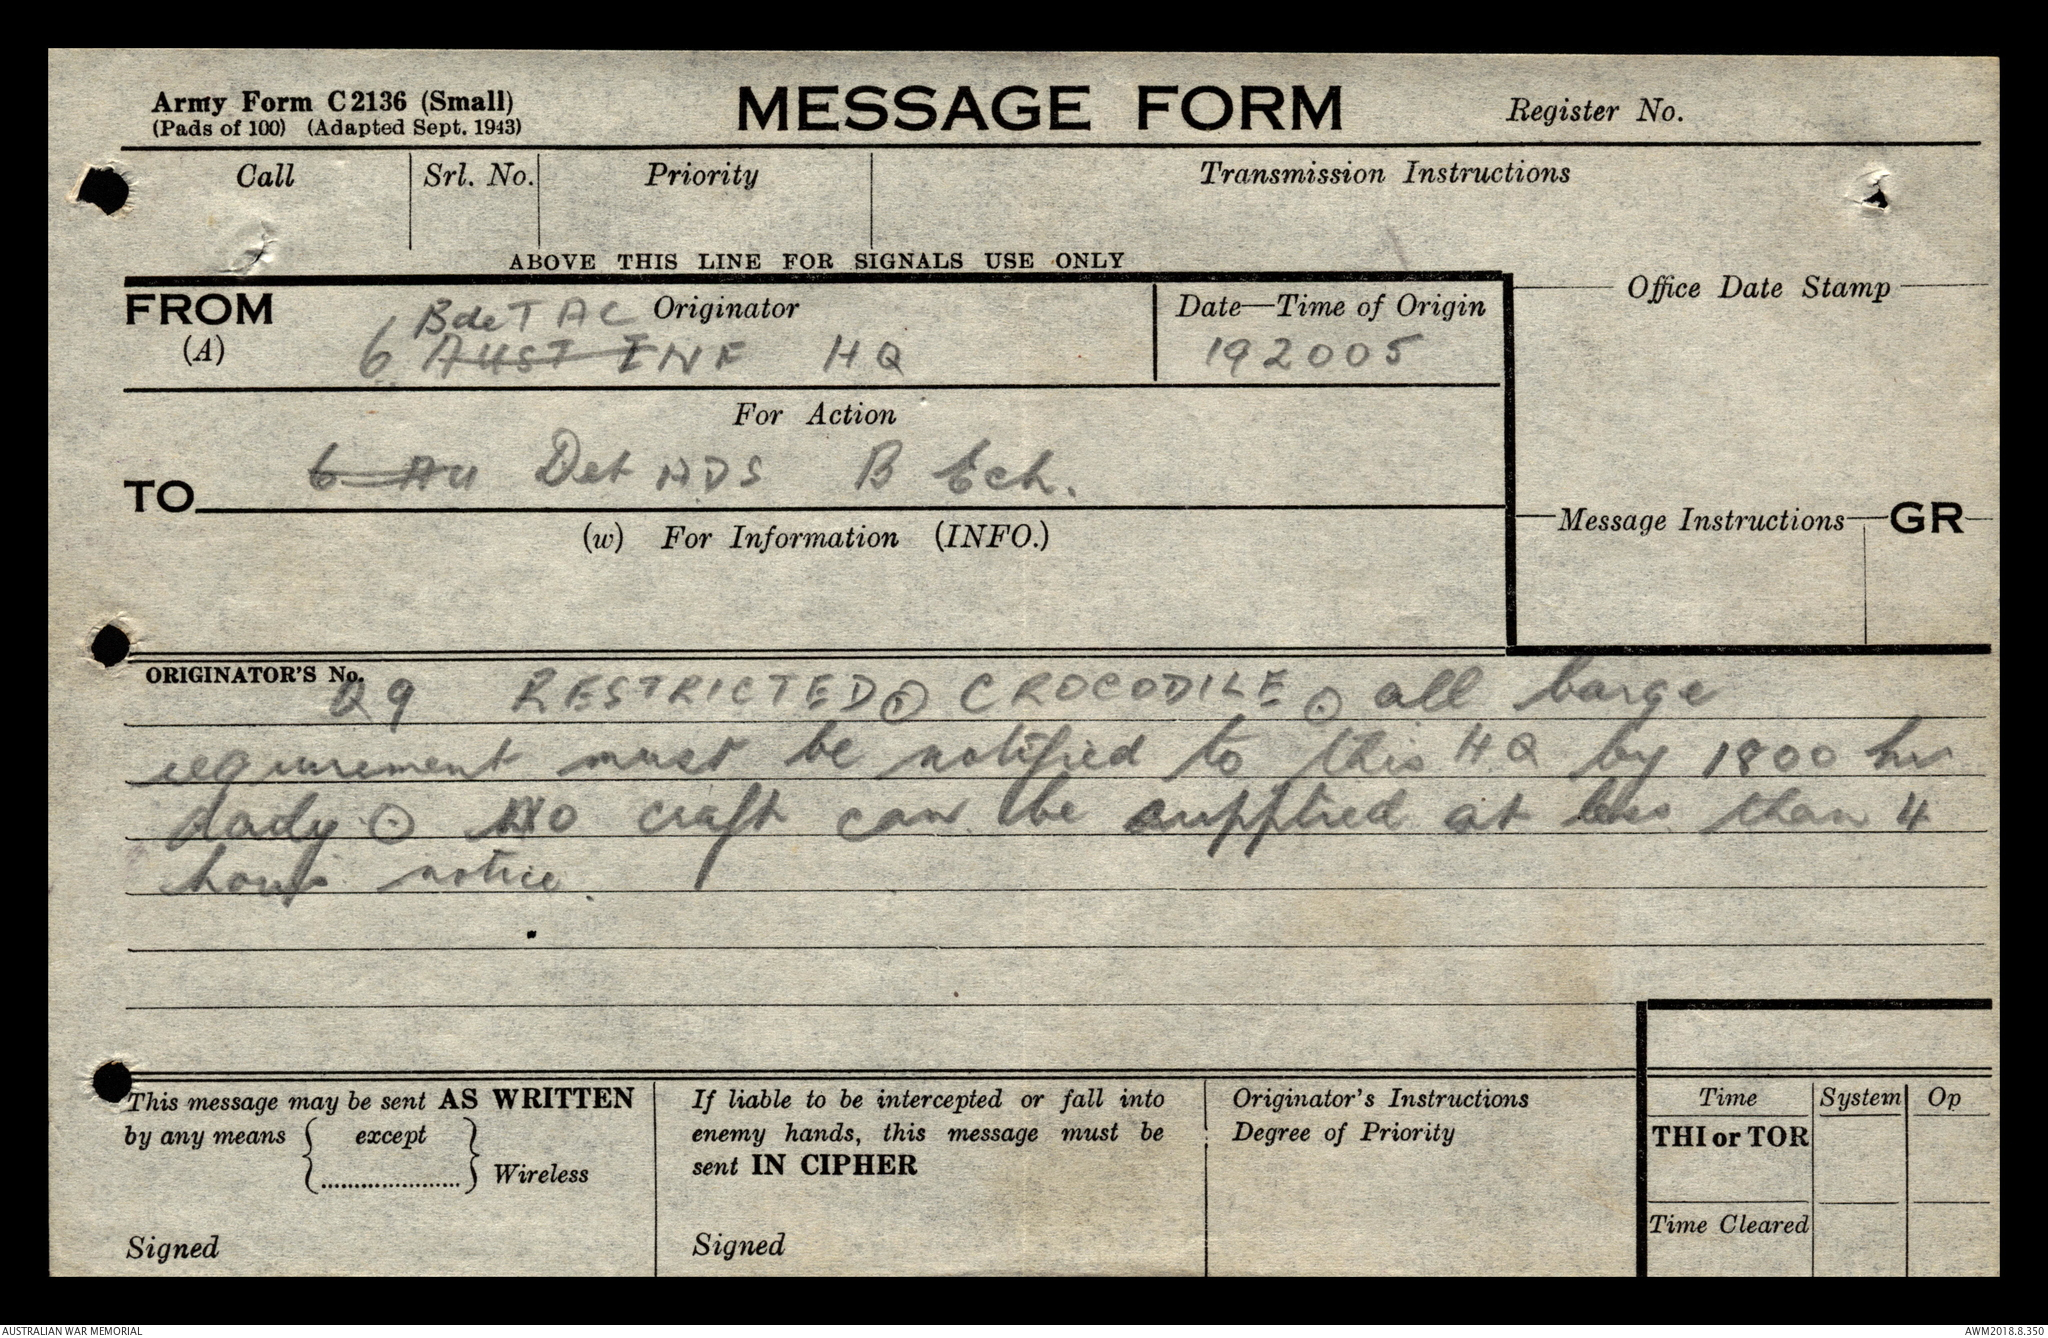 Army Form C2136 (Small)
(Pads of 100) (Adapted Sept. 1943)
MESSAGE FORM
Register No.
Call
Srl. No.
Priority
Transmission Instructions
ABOVE THIS LINE FOR SIGNALS USE ONLY
FROM
(A)
Originator
Bde TAC
6 AUST INF HQ
Date—Time of Origin
192005
Office Date Stamp
For Action
TO
6 Au Det ADS B Ech.
(w) For Information (INFO.)
Message Instructions
GR
ORIGINATOR'S No.
Q9 RESTRICTED ⊙ CROCODILE ⊙ all barge
requirement must be notified to this HQ by 1800 hr
daily ⊙ No craft can be supplied at less than 4
hours notice.
This message may be sent AS WRITTEN
by any means { except
..................... } Wireless
Signed
If liable to be intercepted or fall into
enemy hands, this message must be
sent IN CIPHER
Signed
Originator's Instructions
Degree of Priority
Time
System
Op
THI or TOR
Time Cleared
AUSTRALIAN WAR MEMORIAL
AWM2018.8.350